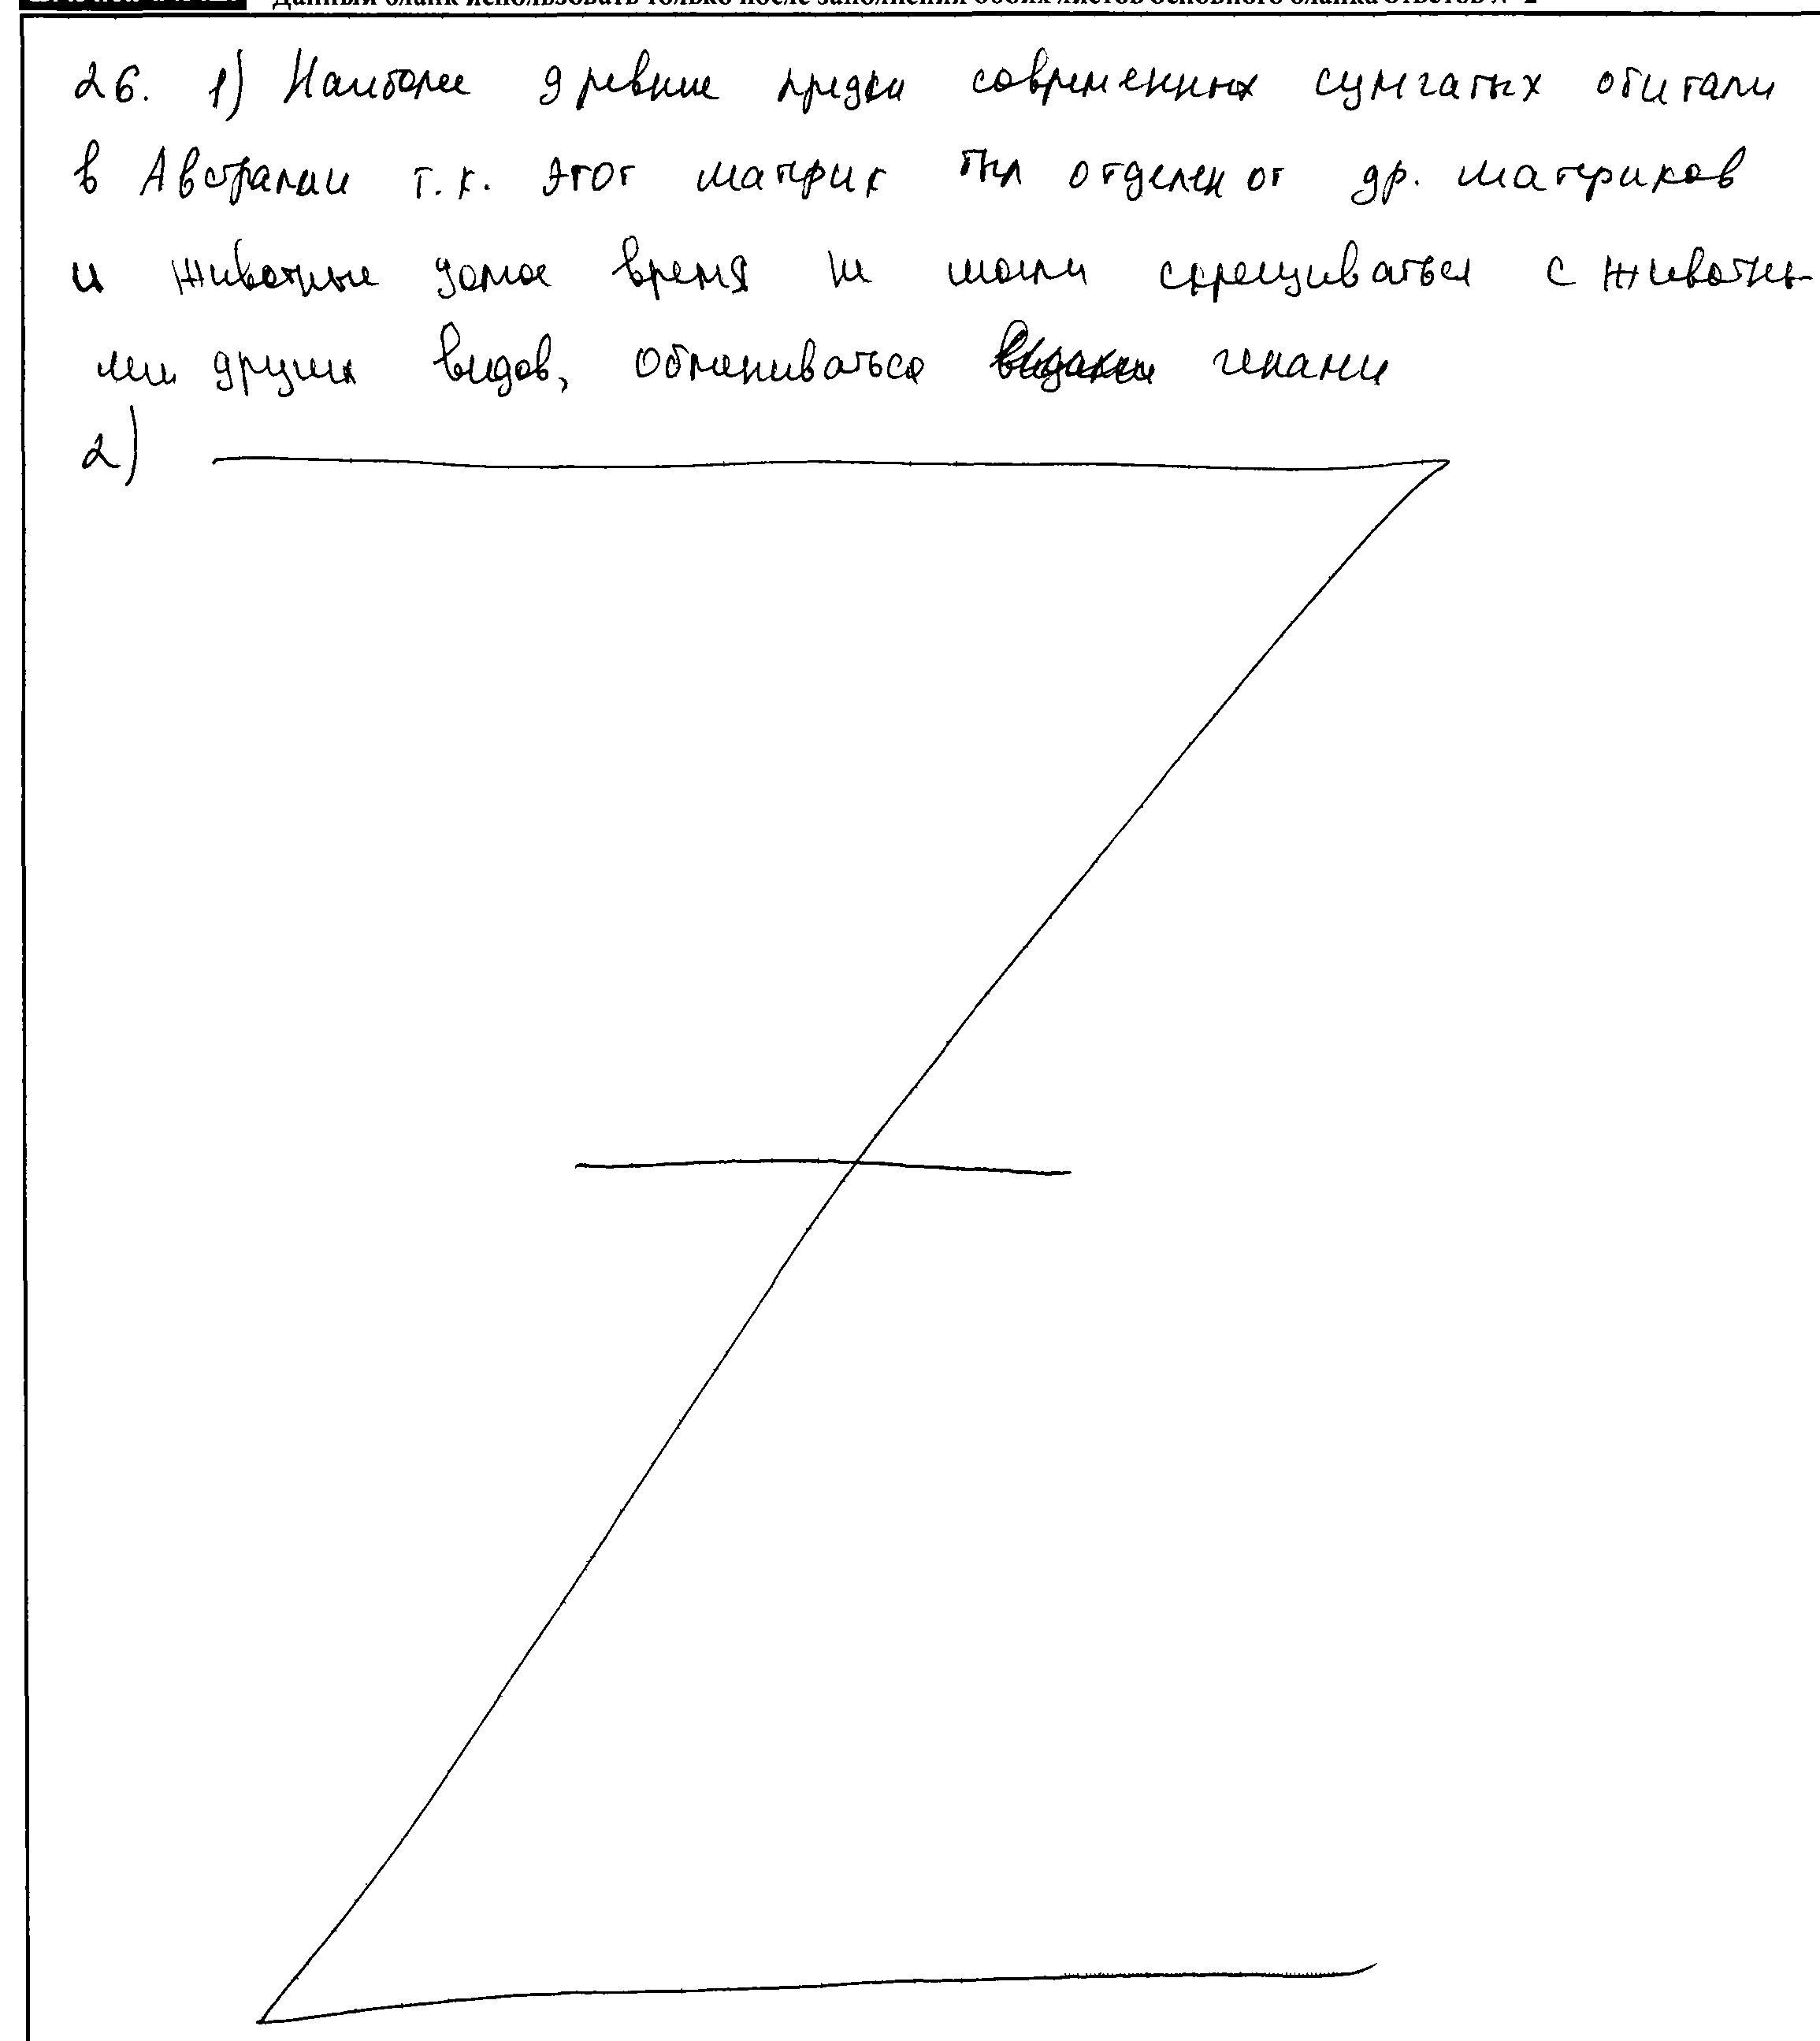 Данный бланк использовать только после заполнения обоих листов основного бланка ответов № 2
26. 1) Наиболее древние предки современных сумчатых обитали
в Австралии т.к. этот матрик был отделен от др. материков
и животные долгое время не могли скрещиваться с животны-
ми других видов, обмениваться генами
2)